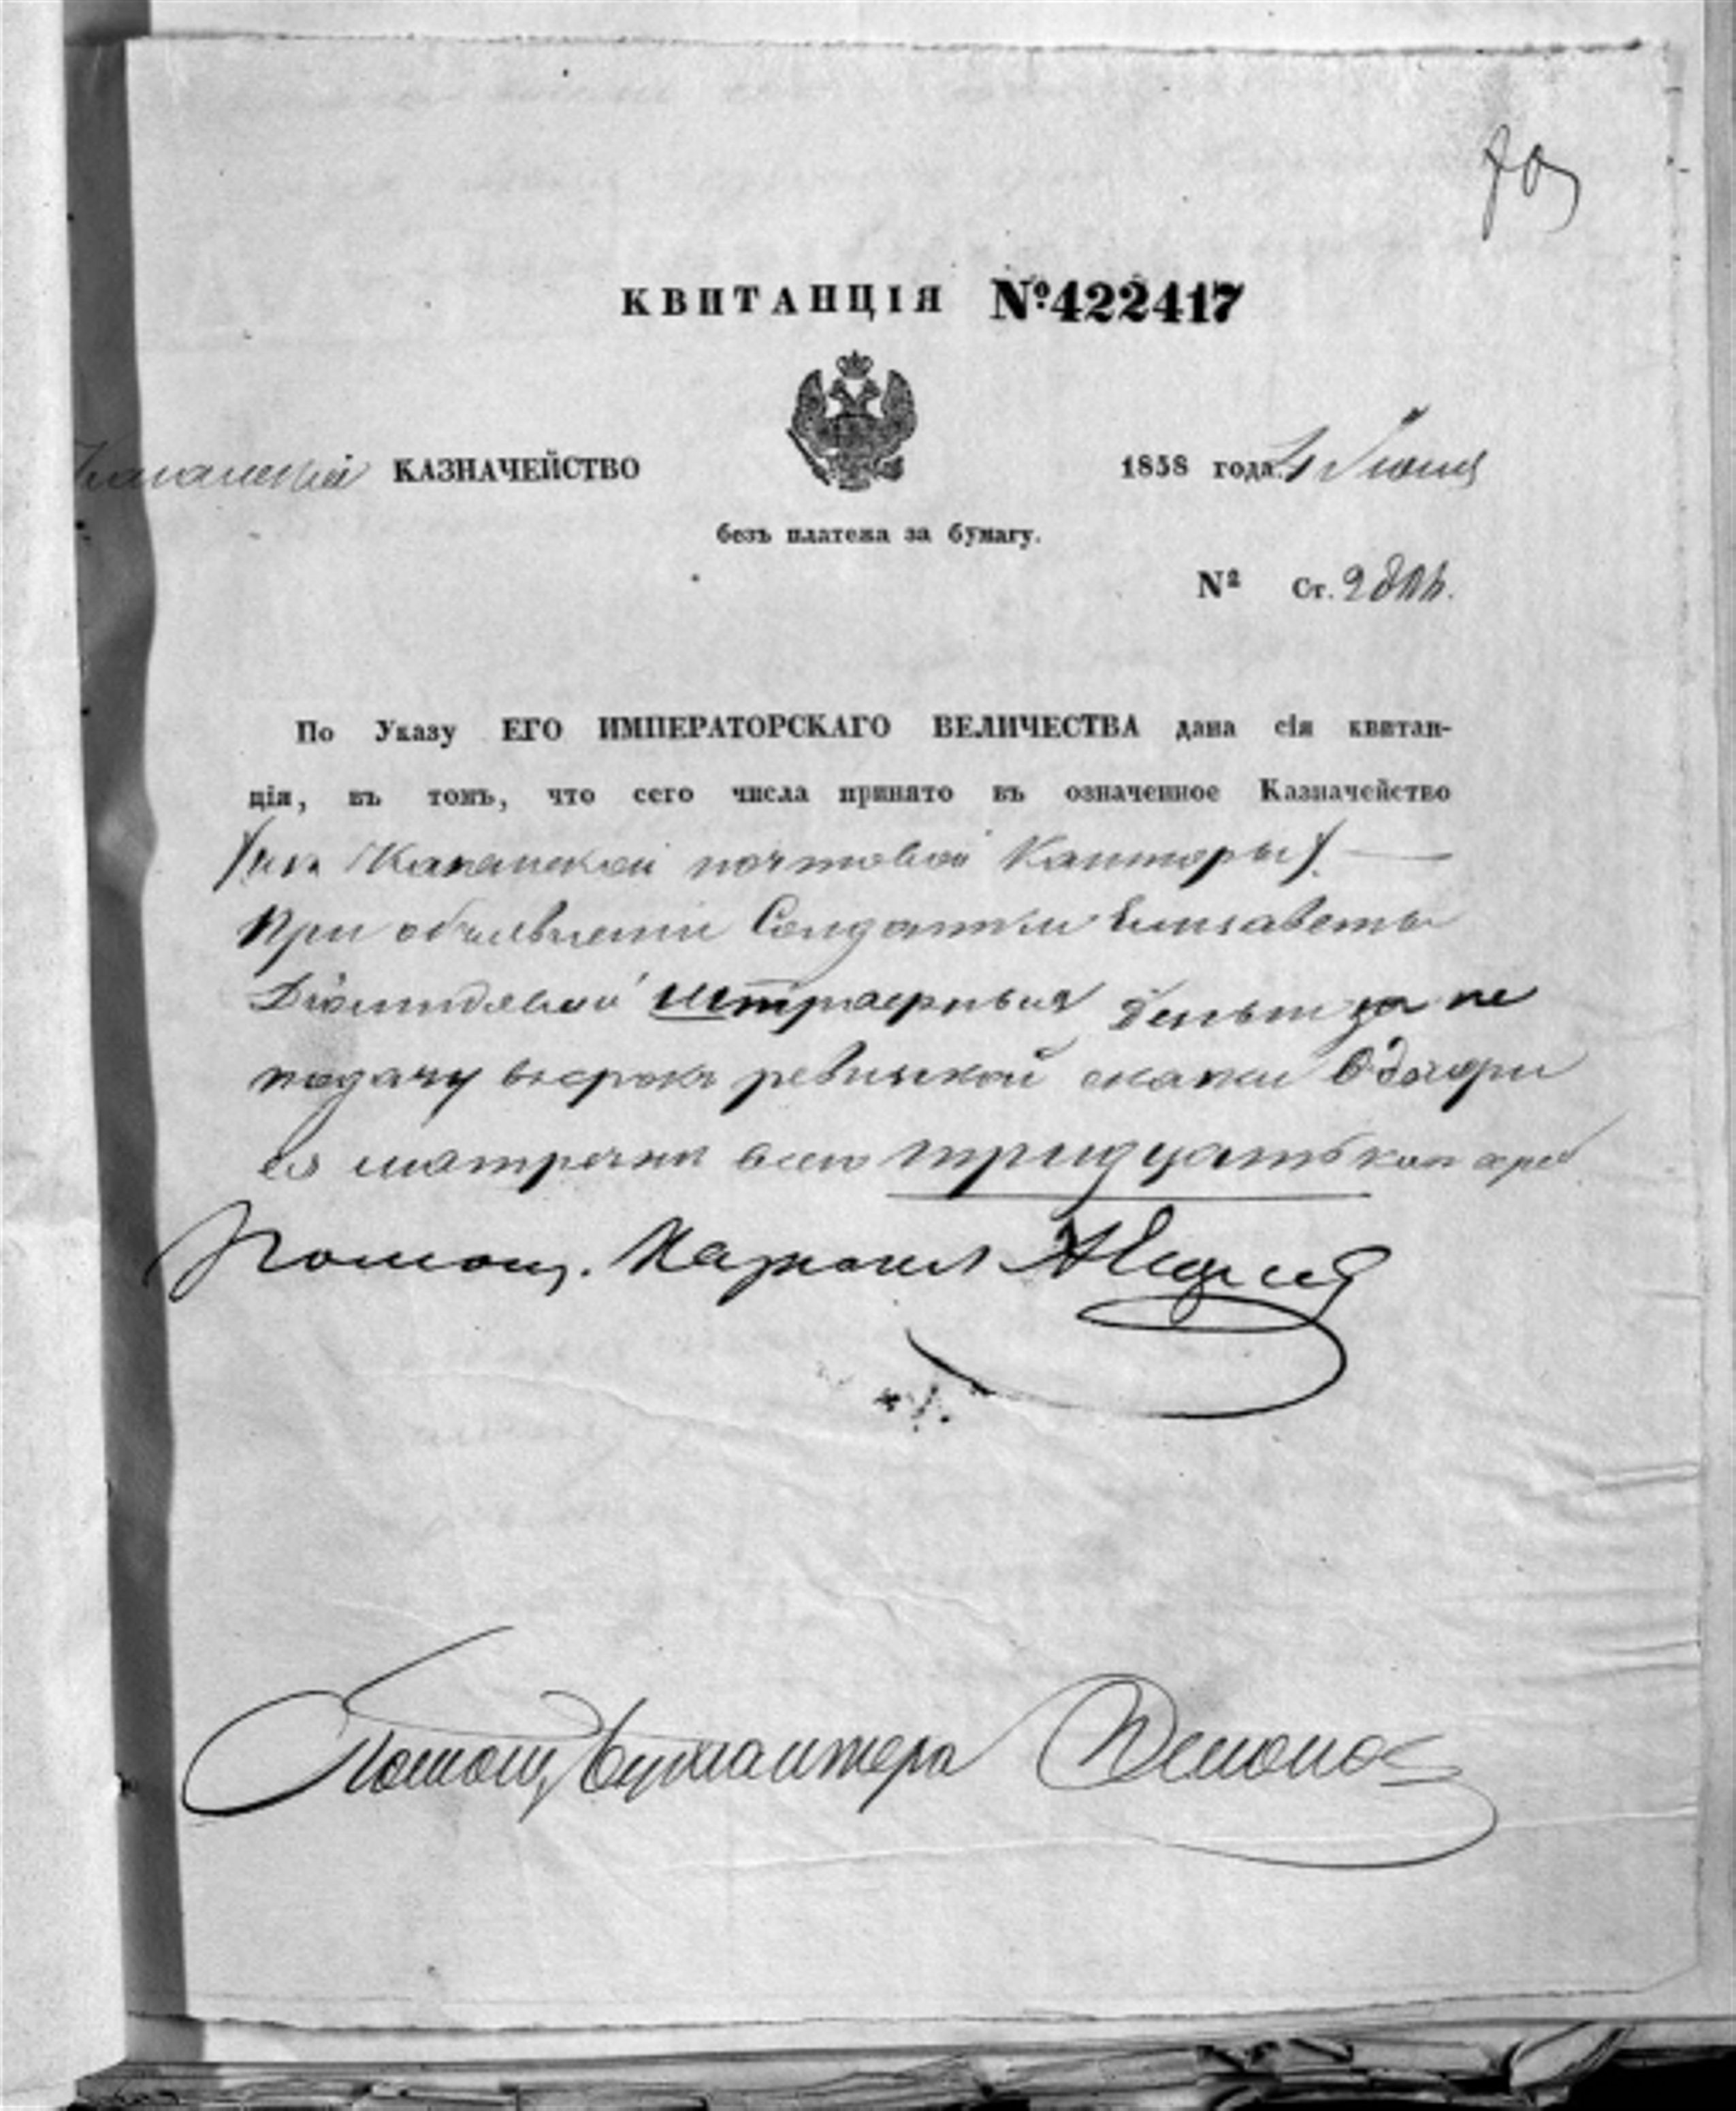 КВИТАНЦІЯ №422417
КАЗНАЧЕЙСТВО 1858 года Іюня
безъ платежа за бумагу.
№ Ст.
По Указу ЕГО ИМПЕРАТОРСКАГО ВЕЛИЧЕСТВА дана сія квитан-
ція, въ томъ, что сего числа принято въ означенное Казначейство
почтовой Канторы)
При объявленіи Солдатки Елизаветы
штрафныя деньги за не
подачу въсрокъ ревизской сказки Одочери
ея всего тридцать коп сереб
Помощ. Казначея
Помощ, Бухгалтера